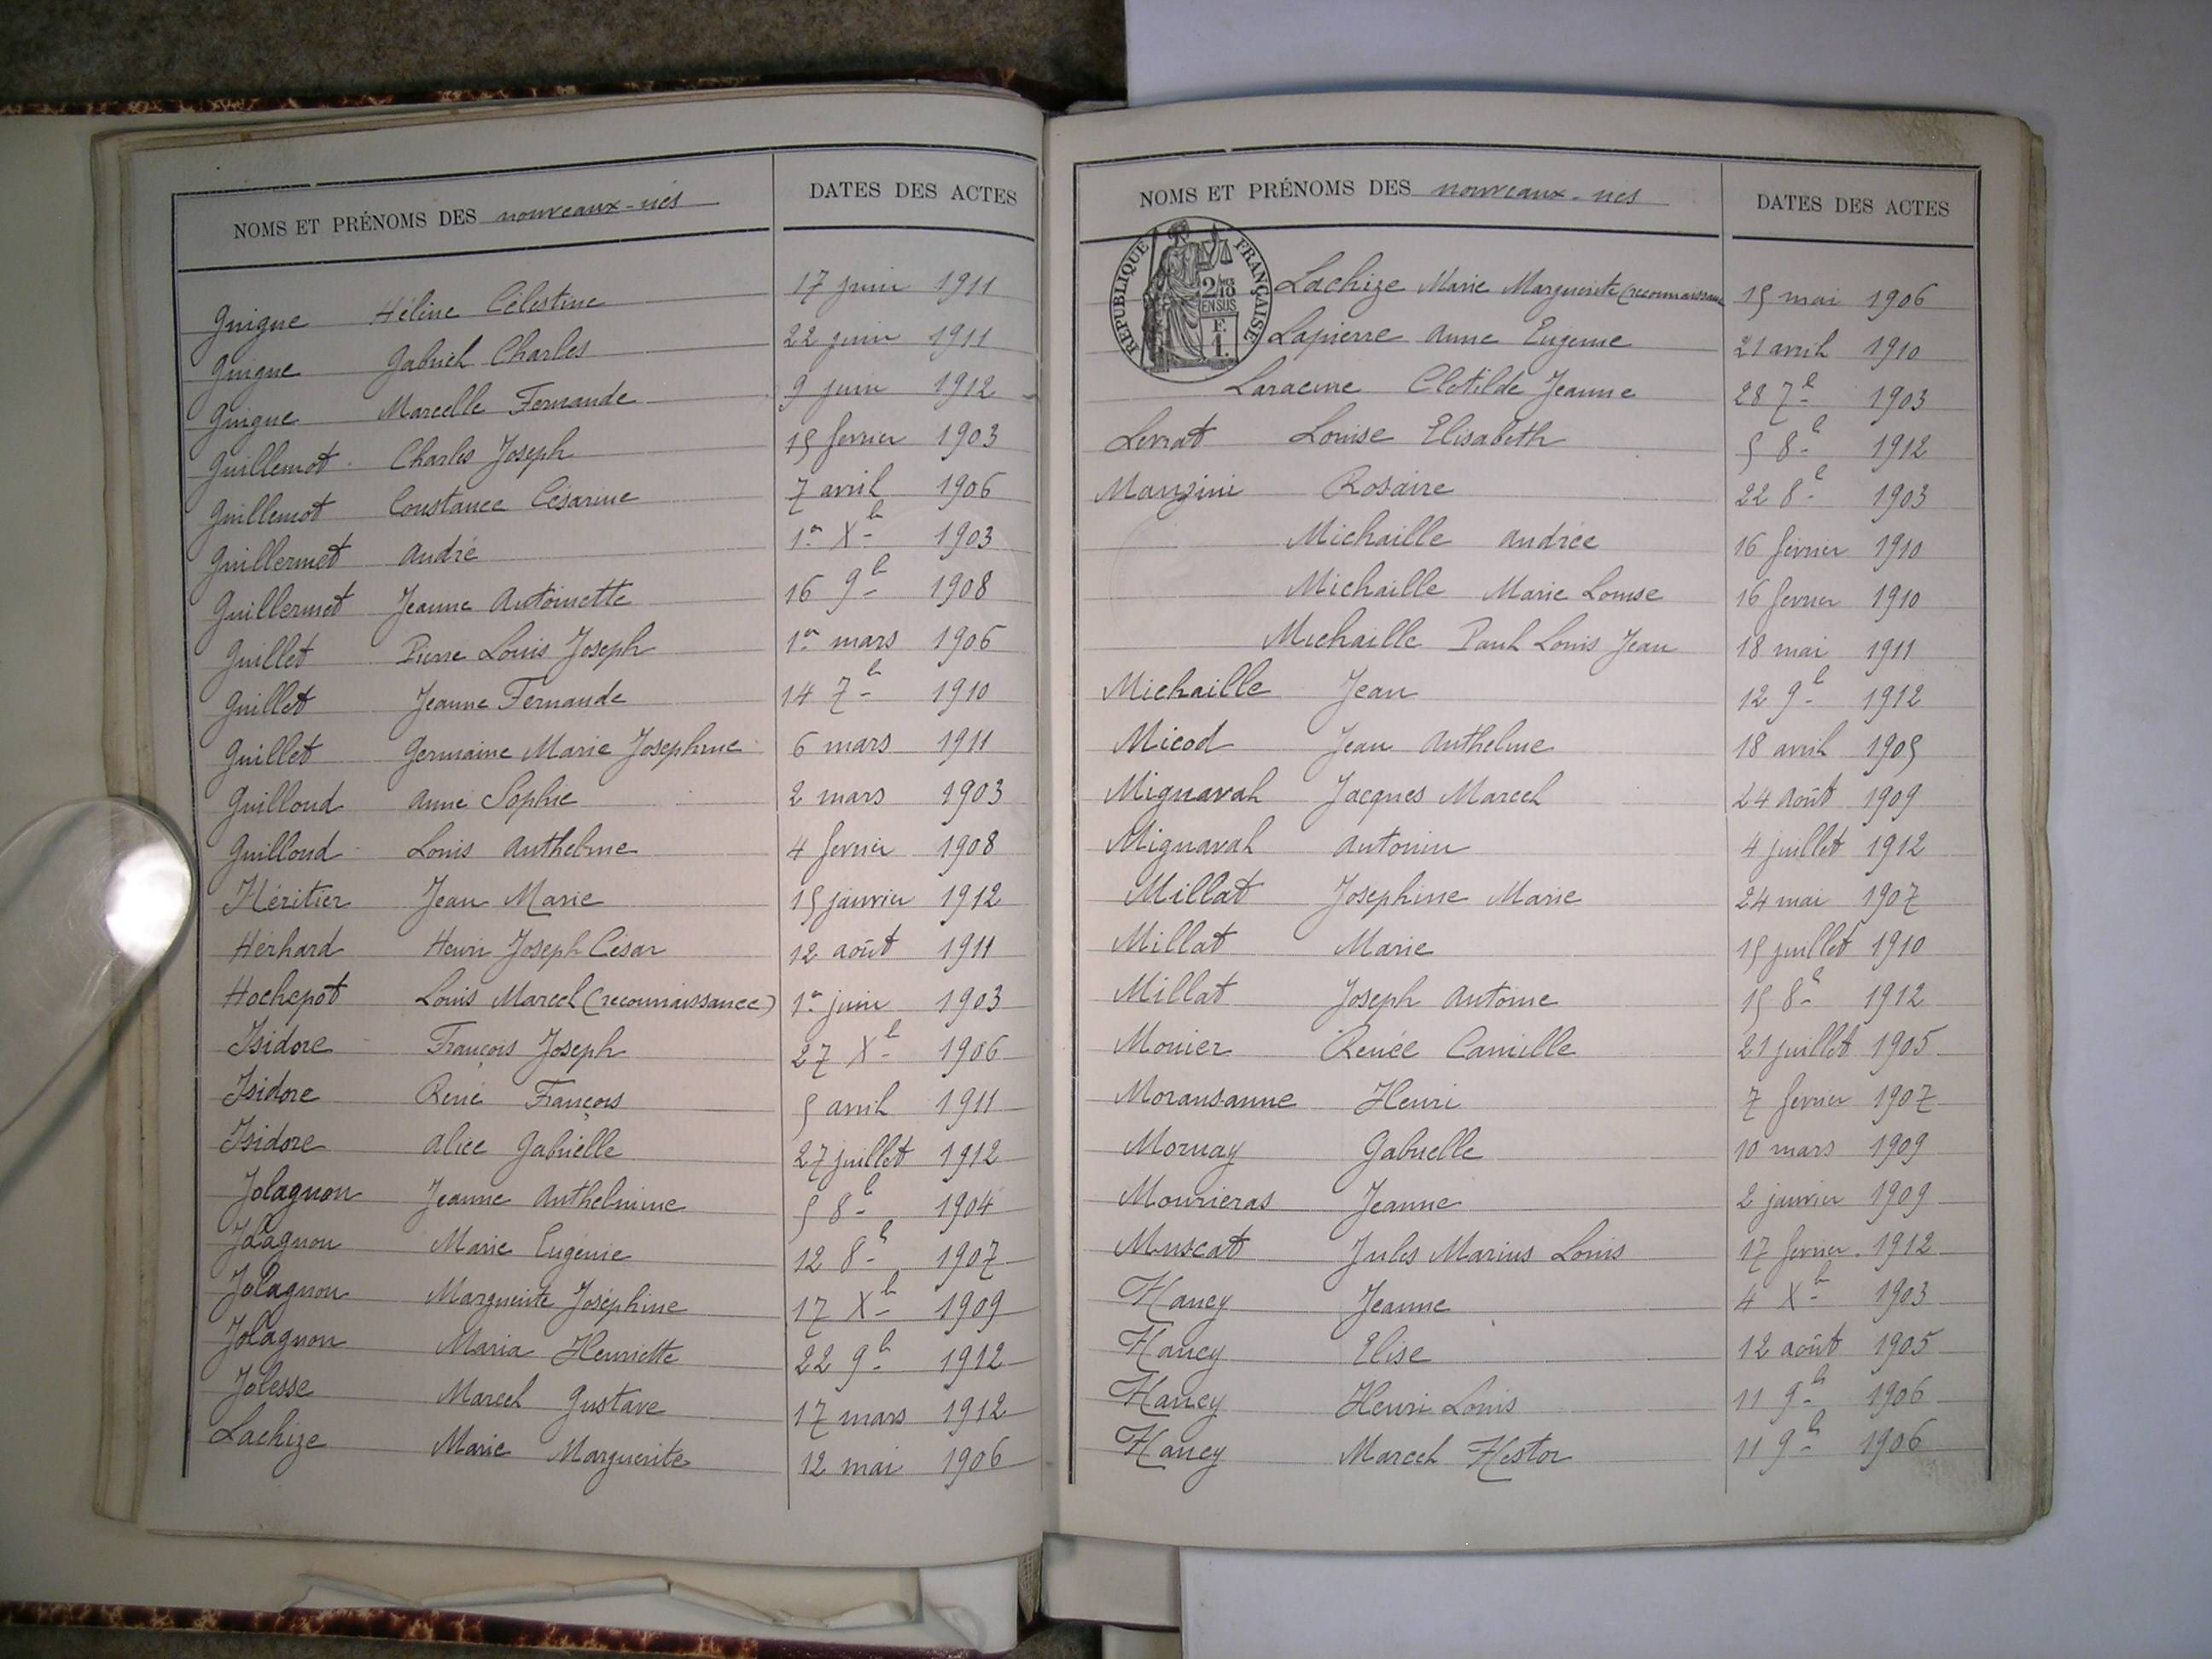 NOMS ET PRÉNOMS DES nouveaux-nés DATES DES ACTES
Guigue Hélène Célestine 17 juin 1911
Guigue Gabriel Charles 22 juin 1911
Guigue Marcelle Fernande 9 juin 1912
Guillemot Charles Joseph 15 février 1903
Guillemot Constance Césarine 7 avril 1906
Guillermet André 1er Xbre 1903
Guillermet Jeanne Antoinette 16 9bre 1908
Guillet Pierre Louis Joseph 1er mars 1906
Guillet Jeanne Fernande 14 7bre 1910
Guillet Germaine Marie Josephine 6 mars 1911
Guilloud Anne Sophie 2 mars 1903
Guilloud Louis Anthelme 4 février 1908
Héritier Jean Marie 15 janvier 1912
Hérhard Henri Joseph César 12 août 1911
Hochepot Louis Marcel (reconnaissance) 1er juin 1903
Isidore François Joseph 27 Xbre 1906
Isidore René François 5 avril 1911
Isidore Alice Gabrielle 27 juillet 1912
Jolagnon Jeanne Anthelmine 5 8bre 1904
Jolagnon Marie Eugénie 12 8bre 1907
Jolagnon Marguerite Joséphine 17 Xbre 1909
Jolagnon Maria Henriette 22 9bre 1912
Jolesse Marcel Gustave 17 mars 1912
Lachize Marie Marguerite 12 mai 1906
NOMS ET PRÉNOMS DES nouveaux-nés DATES DES ACTES
RÉPUBLIQUE FRANÇAISE
2/10 EN SUS
F. 1.
Lachize Marie Marguerite (reconnaissance 15 mai 1906
Lapierre Anne Eugenie 21 avril 1910
Laracine Clotilde Jeanne 28 7bre 1903
Levrat Louise Elisabeth 5 8bre 1912
Manzini Rosaire 22 8bre 1903
Michaille Andrée 16 février 1910
Michaille Marie Louise 16 fevrier 1910
Michaille Paul Louis Jean 18 mai 1911
Michaille Jean 12 9bre 1912
Micod Jean Anthelme 18 avril 1905
Mignaval Jacques Marcel 24 août 1909
Mignaval Antonin 4 juillet 1912
Millat Josephine Marie 24 mai 1907
Millat Marie 15 juillet 1910
Millat Joseph Antoine 15 8bre 1912
Monier Renée Camille 21 juillet 1905
Moransanne Henri 7 fevrier 1907
Mornay Gabrielle 10 mars 1909
Mourieras Jeanne 2 janvier 1909
Muscat Jules Marius Louis 17 fevrier 1912
Nancy Jeanne 4 Xbre 1903
Nancy Elise 12 août 1905
Nancy Henri Louis 11 9bre 1906
Nancy Marcel Nestor 11 9bre 1906